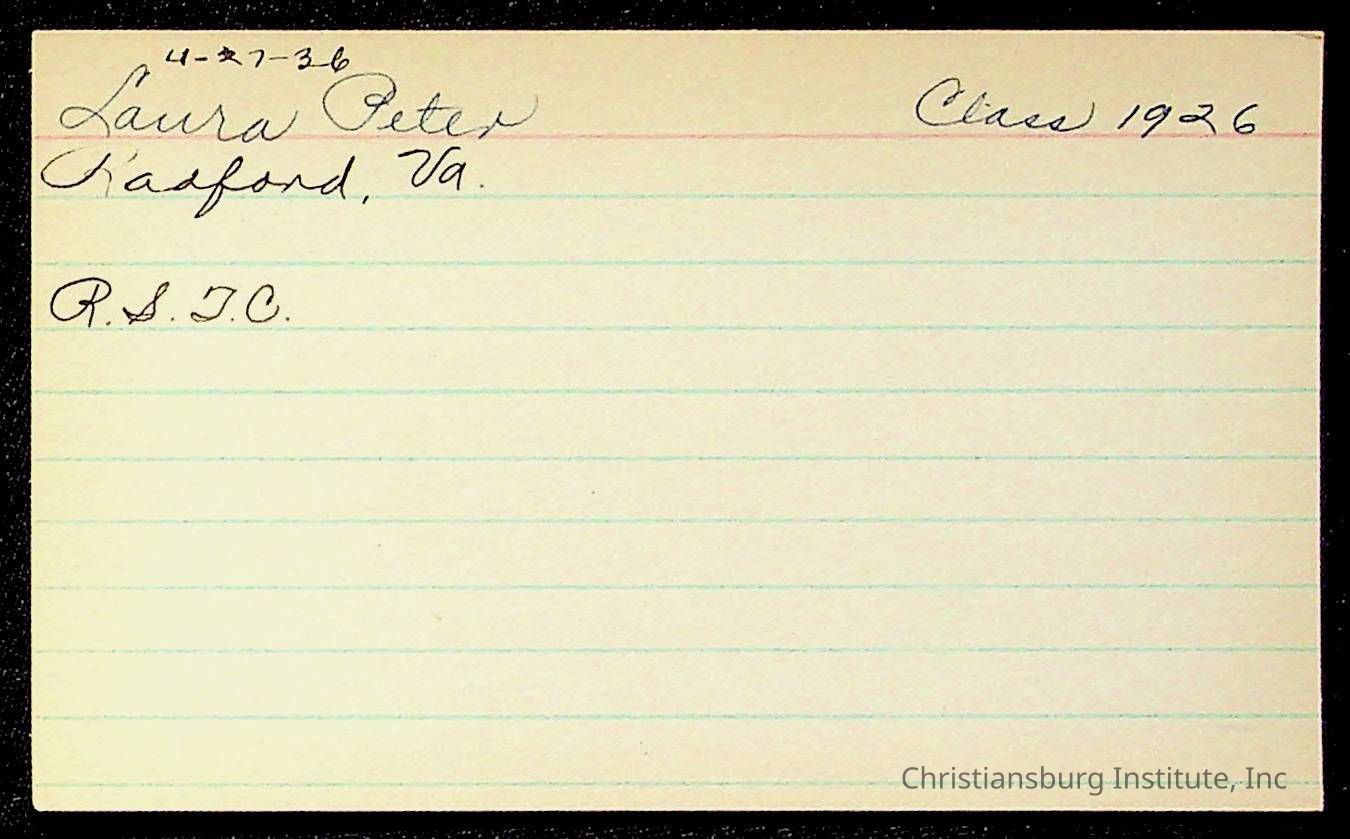 4-27-36
Laura Peter Class 1926
Radford, Va.
R.S.T.C.
Christiansburg Institute, Inc